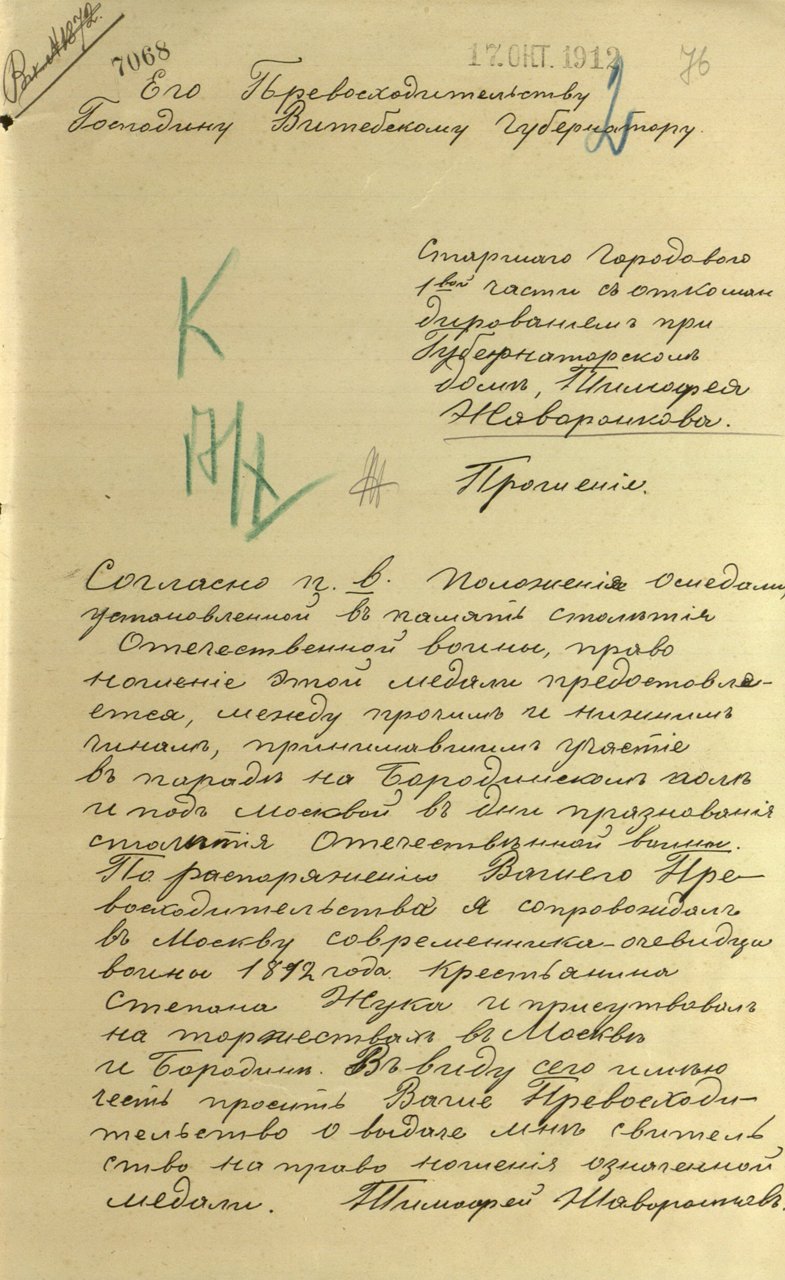 Вх. № 1872.
7068
17. ОКТ. 1912
76
2
Его Превосходительству
Господину Витебскому Губернатору.
Старшаго Городового
1вой части съ откоман
дированиемъ при
Губернаторскомъ
домѣ, Тимофея
Жаворонкова.
К
17/X
Прошеніе.
Согласно п. в. Положенія о медали,
установленной въ память столѣтія
Отечественной воины, право
ношеніе этой медали предоставля-
ется, между прочимъ и нижнимъ
чинамъ, принимавшимъ участіе
въ парадѣ на Бородинскомъ полѣ
и подъ Москвой въ дни празнованія
столѣтія Отечественной воины.
По распоряженію Вашего Пре-
восходительства я сопровождалъ
въ Москву современника-очевидца
воины 1812 года Крестьянина
Степана Жука и присутвовалъ
на торжествахъ въ Москвѣ
и Бородинѣ. Въ виду сего имѣю
честь просить Ваше Превосходи-
тельство о выдаче мнѣ свитель
ство на право ношенія означенной
медали. Тимофей Жаворонковъ.